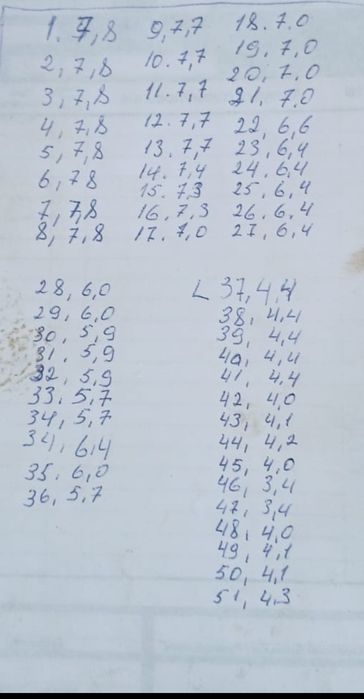 1. 7,8
2, 7,8
3, 7,8
4, 7,8
5, 7,8
6, 78
7, 7,8
8, 7,8
9, 7,7
10. 7,7
11. 7,7
12. 7,7
13. 7,7
14. 7,4
15. 7,3
16. 7,3
17. 7,0
18. 7.0
19. 7,0
20, 7,0
21, 7,0
22, 6,6
23, 6,4
24, 6,4
25, 6,4
26, 6,4
27, 6,4
28, 6,0
29, 6,0
30, 5,9
31, 5,9
32, 5,9
33, 5,7
34, 5,7
34, 6,4
35. 6,0
36, 5,7
37, 4,4
38, 4,4
39, 4,4
40, 4,4
41, 4,4
42, 4,0
43, 4,1
44, 4,2
45, 4,0
46, 3,4
47, 3,4
48, 4,0
49, 4,1
50, 4,1
51, 4,3